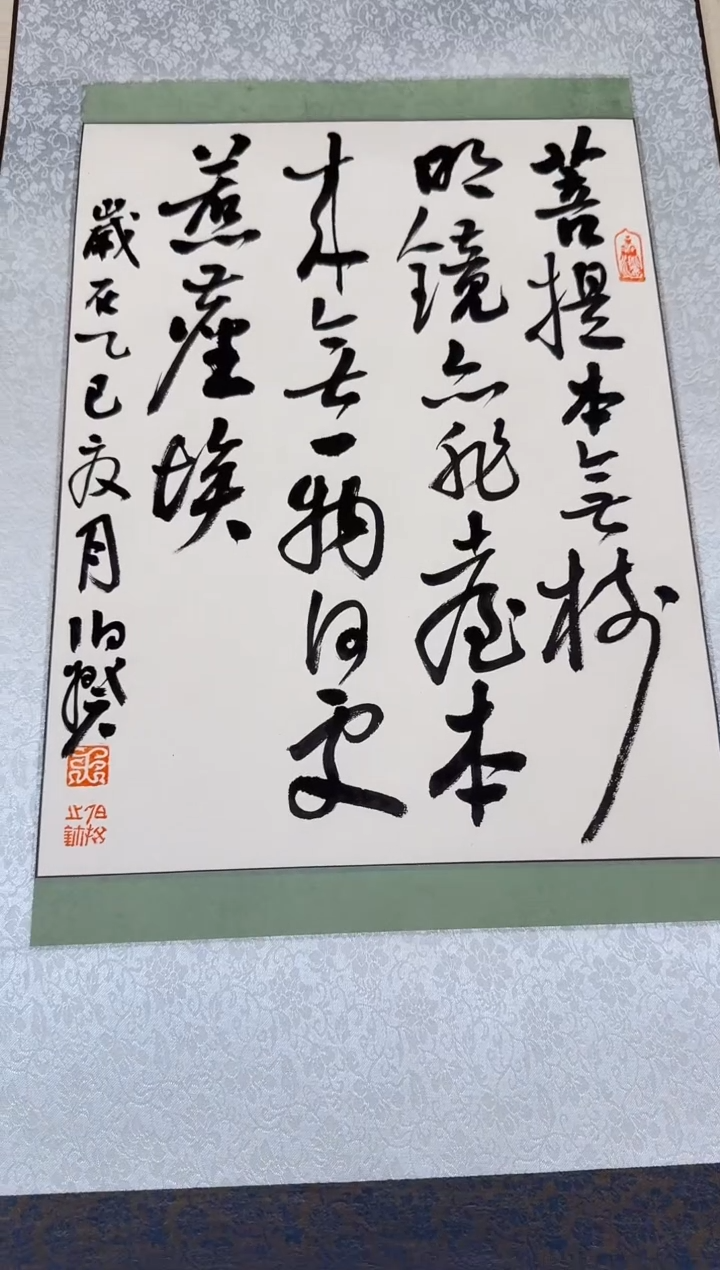 菩提本無樹
明鏡亦非臺本
來無一物何處
惹塵埃
歲在乙巳夏月伯